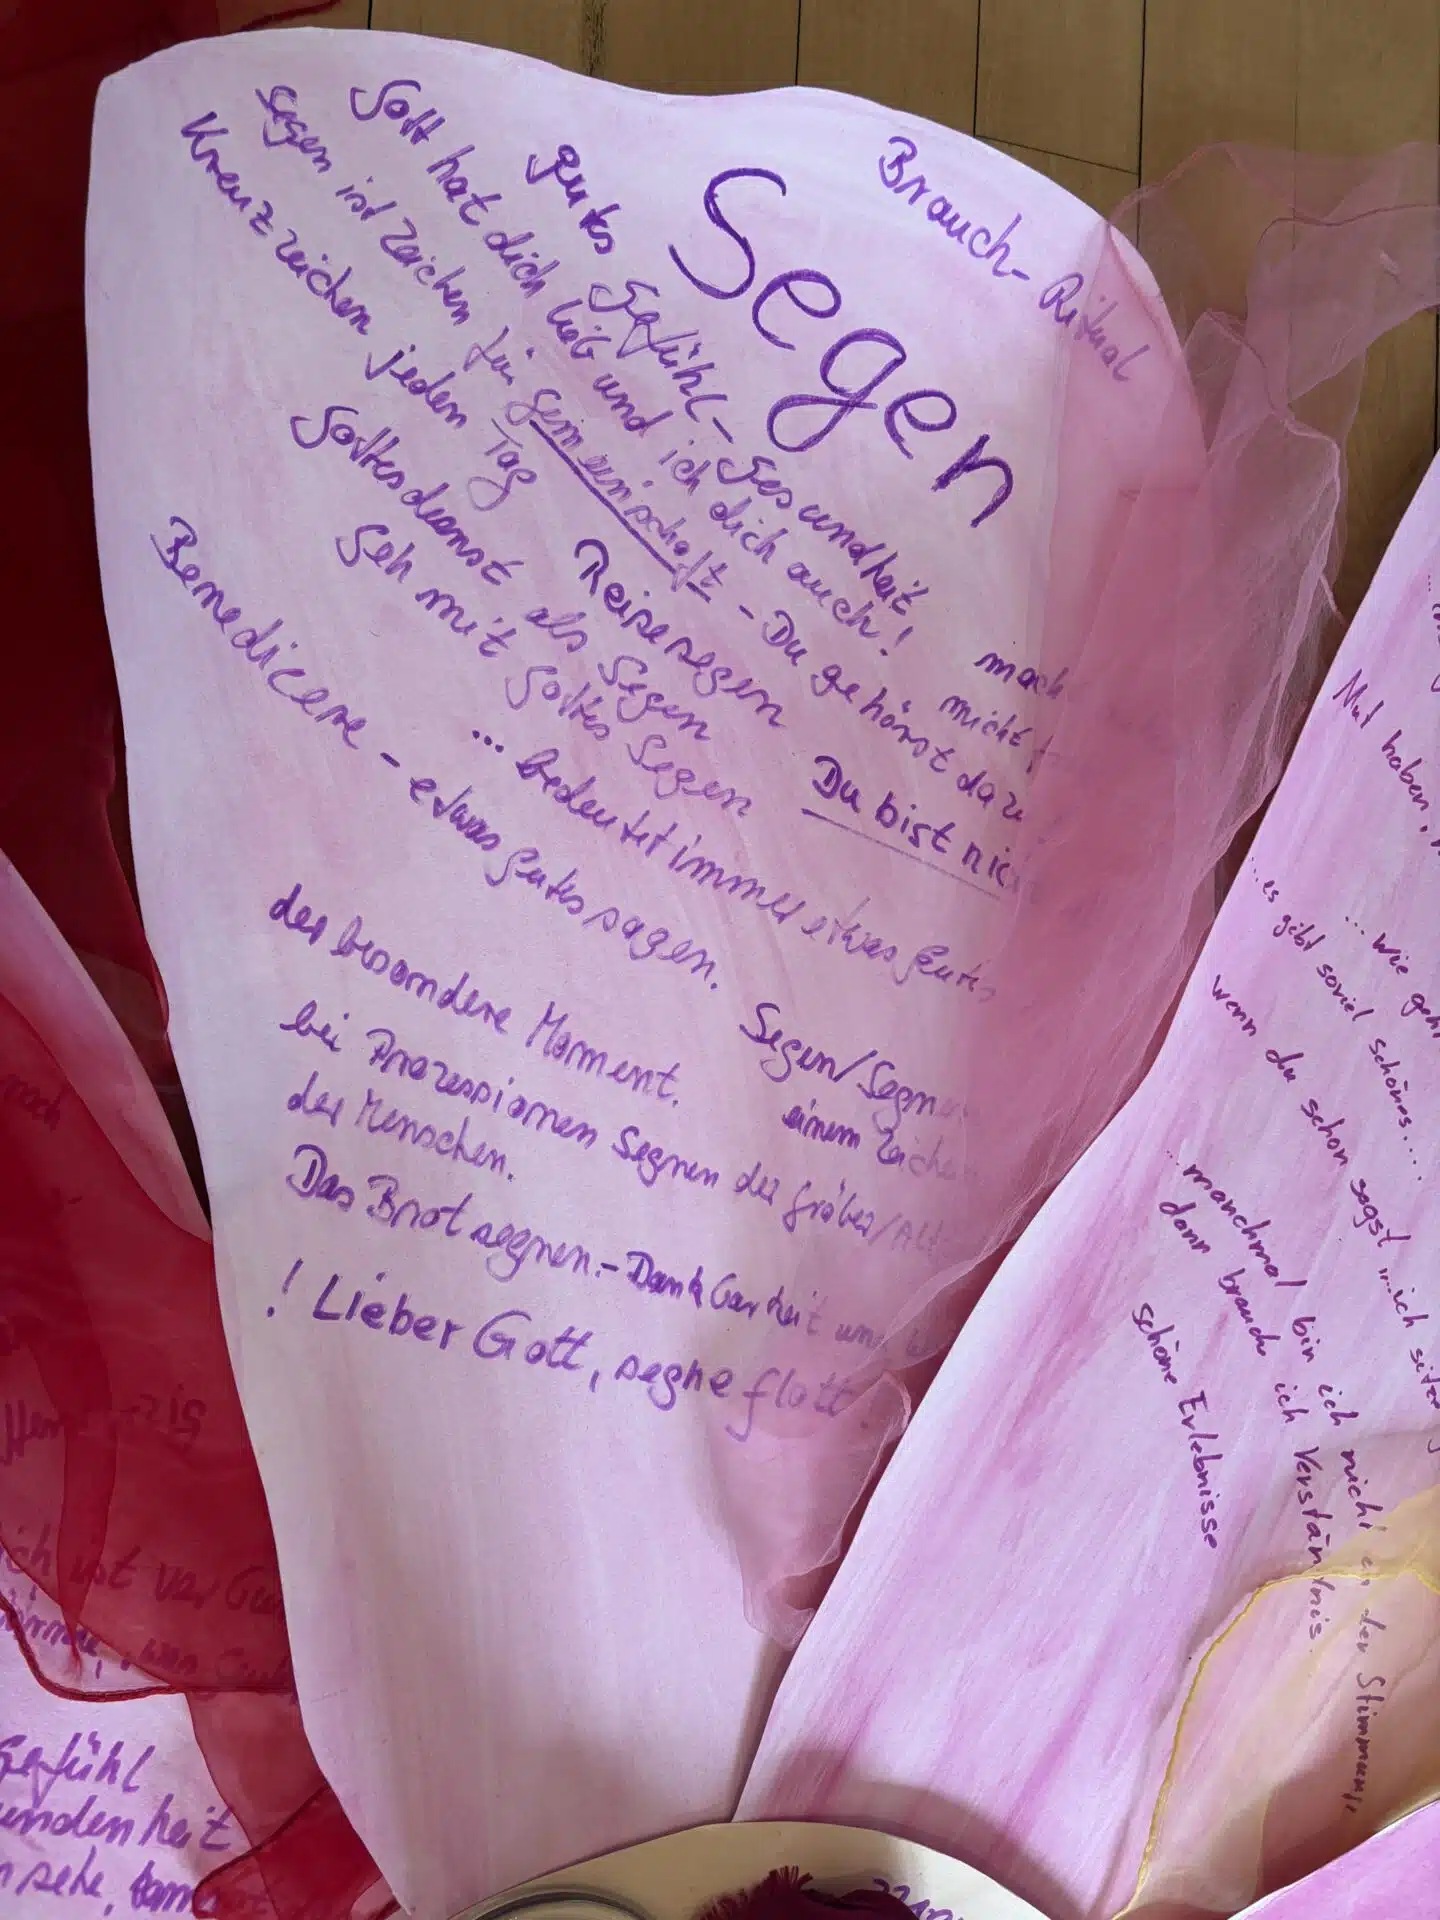 Brauch-Ritual
Segen
gutes Gefühl - Gesundheit
Gott hat dich lieb und ich dich auch!
Segen ist Zeichen für Gemeinschaft - Du gehörst dazu
Kreuzzeichen jeden Tag
mach
nicht
Reisesegen
Du bist nic
Gottesdienst als Segen
Geh mit Gottes Segen
... bedeutet immer etwas Gutes
Benedicere - etwas Gutes sagen.
Segen/Segnen
einem Zeichen
der besondere Moment.
bei Prozessionen Segnen der Gräber/Alt
der Menschen.
Das Brot segnen. - Dankbarkeit
! Lieber Gott, segne flott!
Mut haben,
... wie geht
...es gibt soviel schönes....
wenn du schon sagst ...ich
... manchmal bin ich nicht in der Stimmung
dann brauch ich Verständnis.
schöne Erlebnisse
noch
ich ist
Gefühl
undenheit
n sehe,